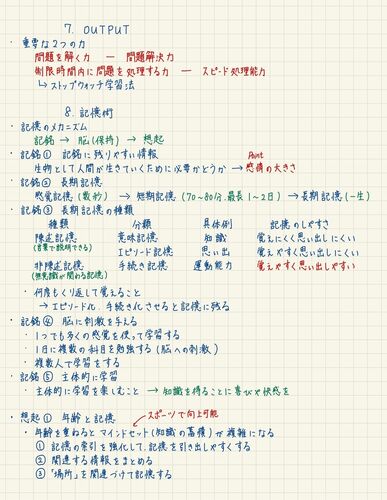 7. OUTPUT
・重要な2つの力
問題を解く力 — 問題解決力
制限時間内に問題を処理する力 — スピード処理能力
↳ ストップウォッチ学習法
8. 記憶術
・記憶のメカニズム
記銘 → 脳(保持) → 想起
・記銘① 記銘に残りやすい情報
Point
生物として人間が生きていくために必要かどうか → 感情の大きさ
・記銘② 長期記憶
感覚記憶(数秒) → 短期記憶(70〜80分.最長1〜2日) → 長期記憶(一生)
・記銘③ 長期記憶の種類
種類 分類 具体例 記憶のしやすさ
陳述記憶 意味記憶 知識 覚えにくく思い出しにくい
(言葉で説明できる) エピソード記憶 思い出 覚えやすく思い出しにくい
非陳述記憶 手続き記憶 運動能力 覚えやすく思い出しやすい
(無意識が関わる記憶)
・何度もくり返して覚えること
→ エピソード化.手続き化させると記憶に残る
・記銘④ 脳に刺激を与える
・1つでも多くの感覚を使って学習する
・1日に複数の科目を勉強する(脳への刺激)
・複数人で学習をする
・記銘⑤ 主体的に学習
・主体的に学習を楽しむこと → 知識を得ることに喜びや快感を
・想起① 年齢と記憶
スポーツで向上可能
・年齢を重ねるとマインドセット(知識の蓄積)が複雑になる
① 記憶の索引を強化して.記憶を引き出しやすくする
② 関連する情報をまとめる
③ 「場所」を関連づけて記憶する